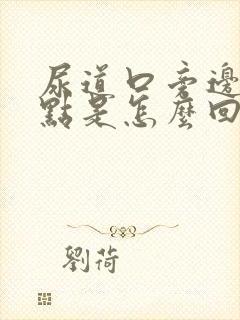 尿道口旁邊
點是怎麼回
劉荷